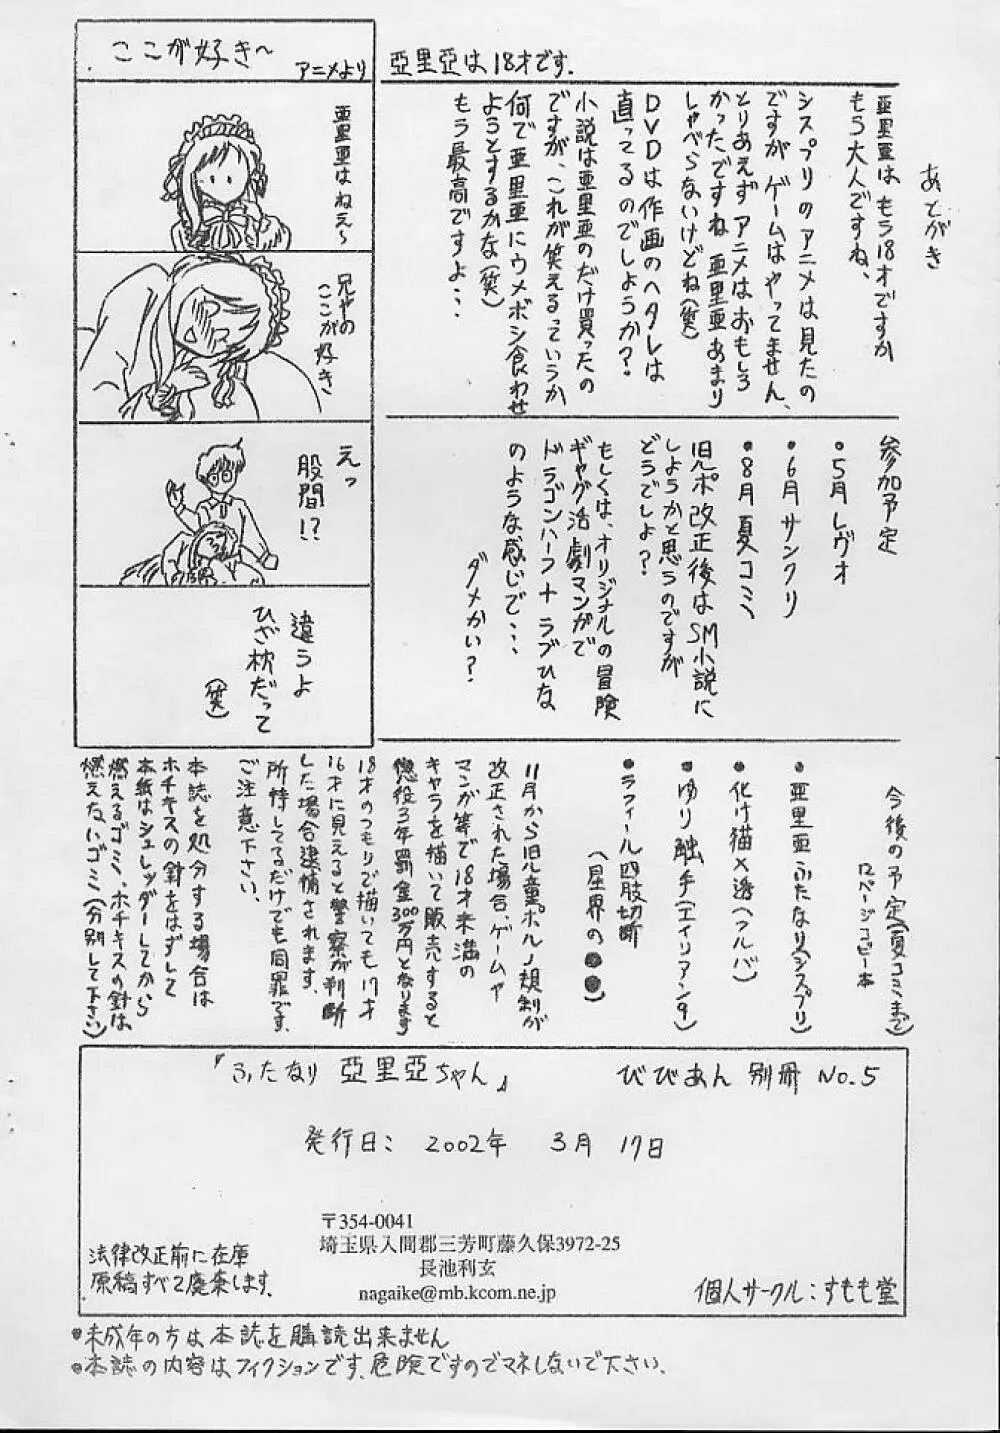 ここが好き～
アニメより
亜里亜はねえ～
兄やの
ここが好き
えっ
股間!?
違うよ
ひざ枕だって
(笑)
亞里亞は18才です.
あとがき
亜里亜はもう18才ですか
もう大人ですね、
シスプリのアニメは見たの
ですがゲームはやってません、
とりあえずアニメはおもしろ
かったですね亜里亜あまり
しゃべらないけどね(笑)
DVDは作画のヘタレは
直ってるのでしようか?
小説は亜里亜のだけ買ったの
ですが、これが笑えるっていうか
何で亜里亜にウメボシ食わせ
ようとするかな(笑)
もう最高ですよ・・・
参加予定
•5月レヴォ
•6月サンクリ
•8月夏コミ
旧ポ改正後はSM小説に
しようかと思うのですが
どうでしょ?
もしくは、オリジナルの冒険
ギャグ活劇マンガで
ドラゴンハーフ+ラブひな
のような感じで・・・
ダメかい?
今後の予定(夏コミまで)
12ページコピー本
•亜里亜ふたなり(シスプリ)
•化け猫×透(フルバ)
•ゆり触手(エイリアン9)
•ラフィール四肢切断
(星界の●●)
11月から旧児童ポルノ規制が
改正された場合、ゲームや
マンガ等で18才未満の
キャラを描いて販売すると
懲役3年罰金300万円となります
18才のつもりで描いても17才
16才に見えると警察が判断
した場合逮捕されます.
所持してるだけでも同罪です.
ご注意下さい.
本誌を処分する場合は
ホチキスの針をはずして
本紙はシュレッダーしてから
燃えるゴミ、ホチキスの針は
燃えないゴミ(分別して下さい)
『ふたなり 亞里亞ちゃん』
びびあん 別冊 No.5
発行日: 2002年 3月 17日
〒354-0041
埼玉県入間郡三芳町藤久保3972-25
長池利玄
nagaike@mb.kcom.ne.jp
法律改正前に在庫
原稿すべて廃棄します.
個人サークル:すもも堂
•未成年の方は本誌を購読出来ません
•本誌の内容はフィクションです.危険ですのでマネしないで下さい.